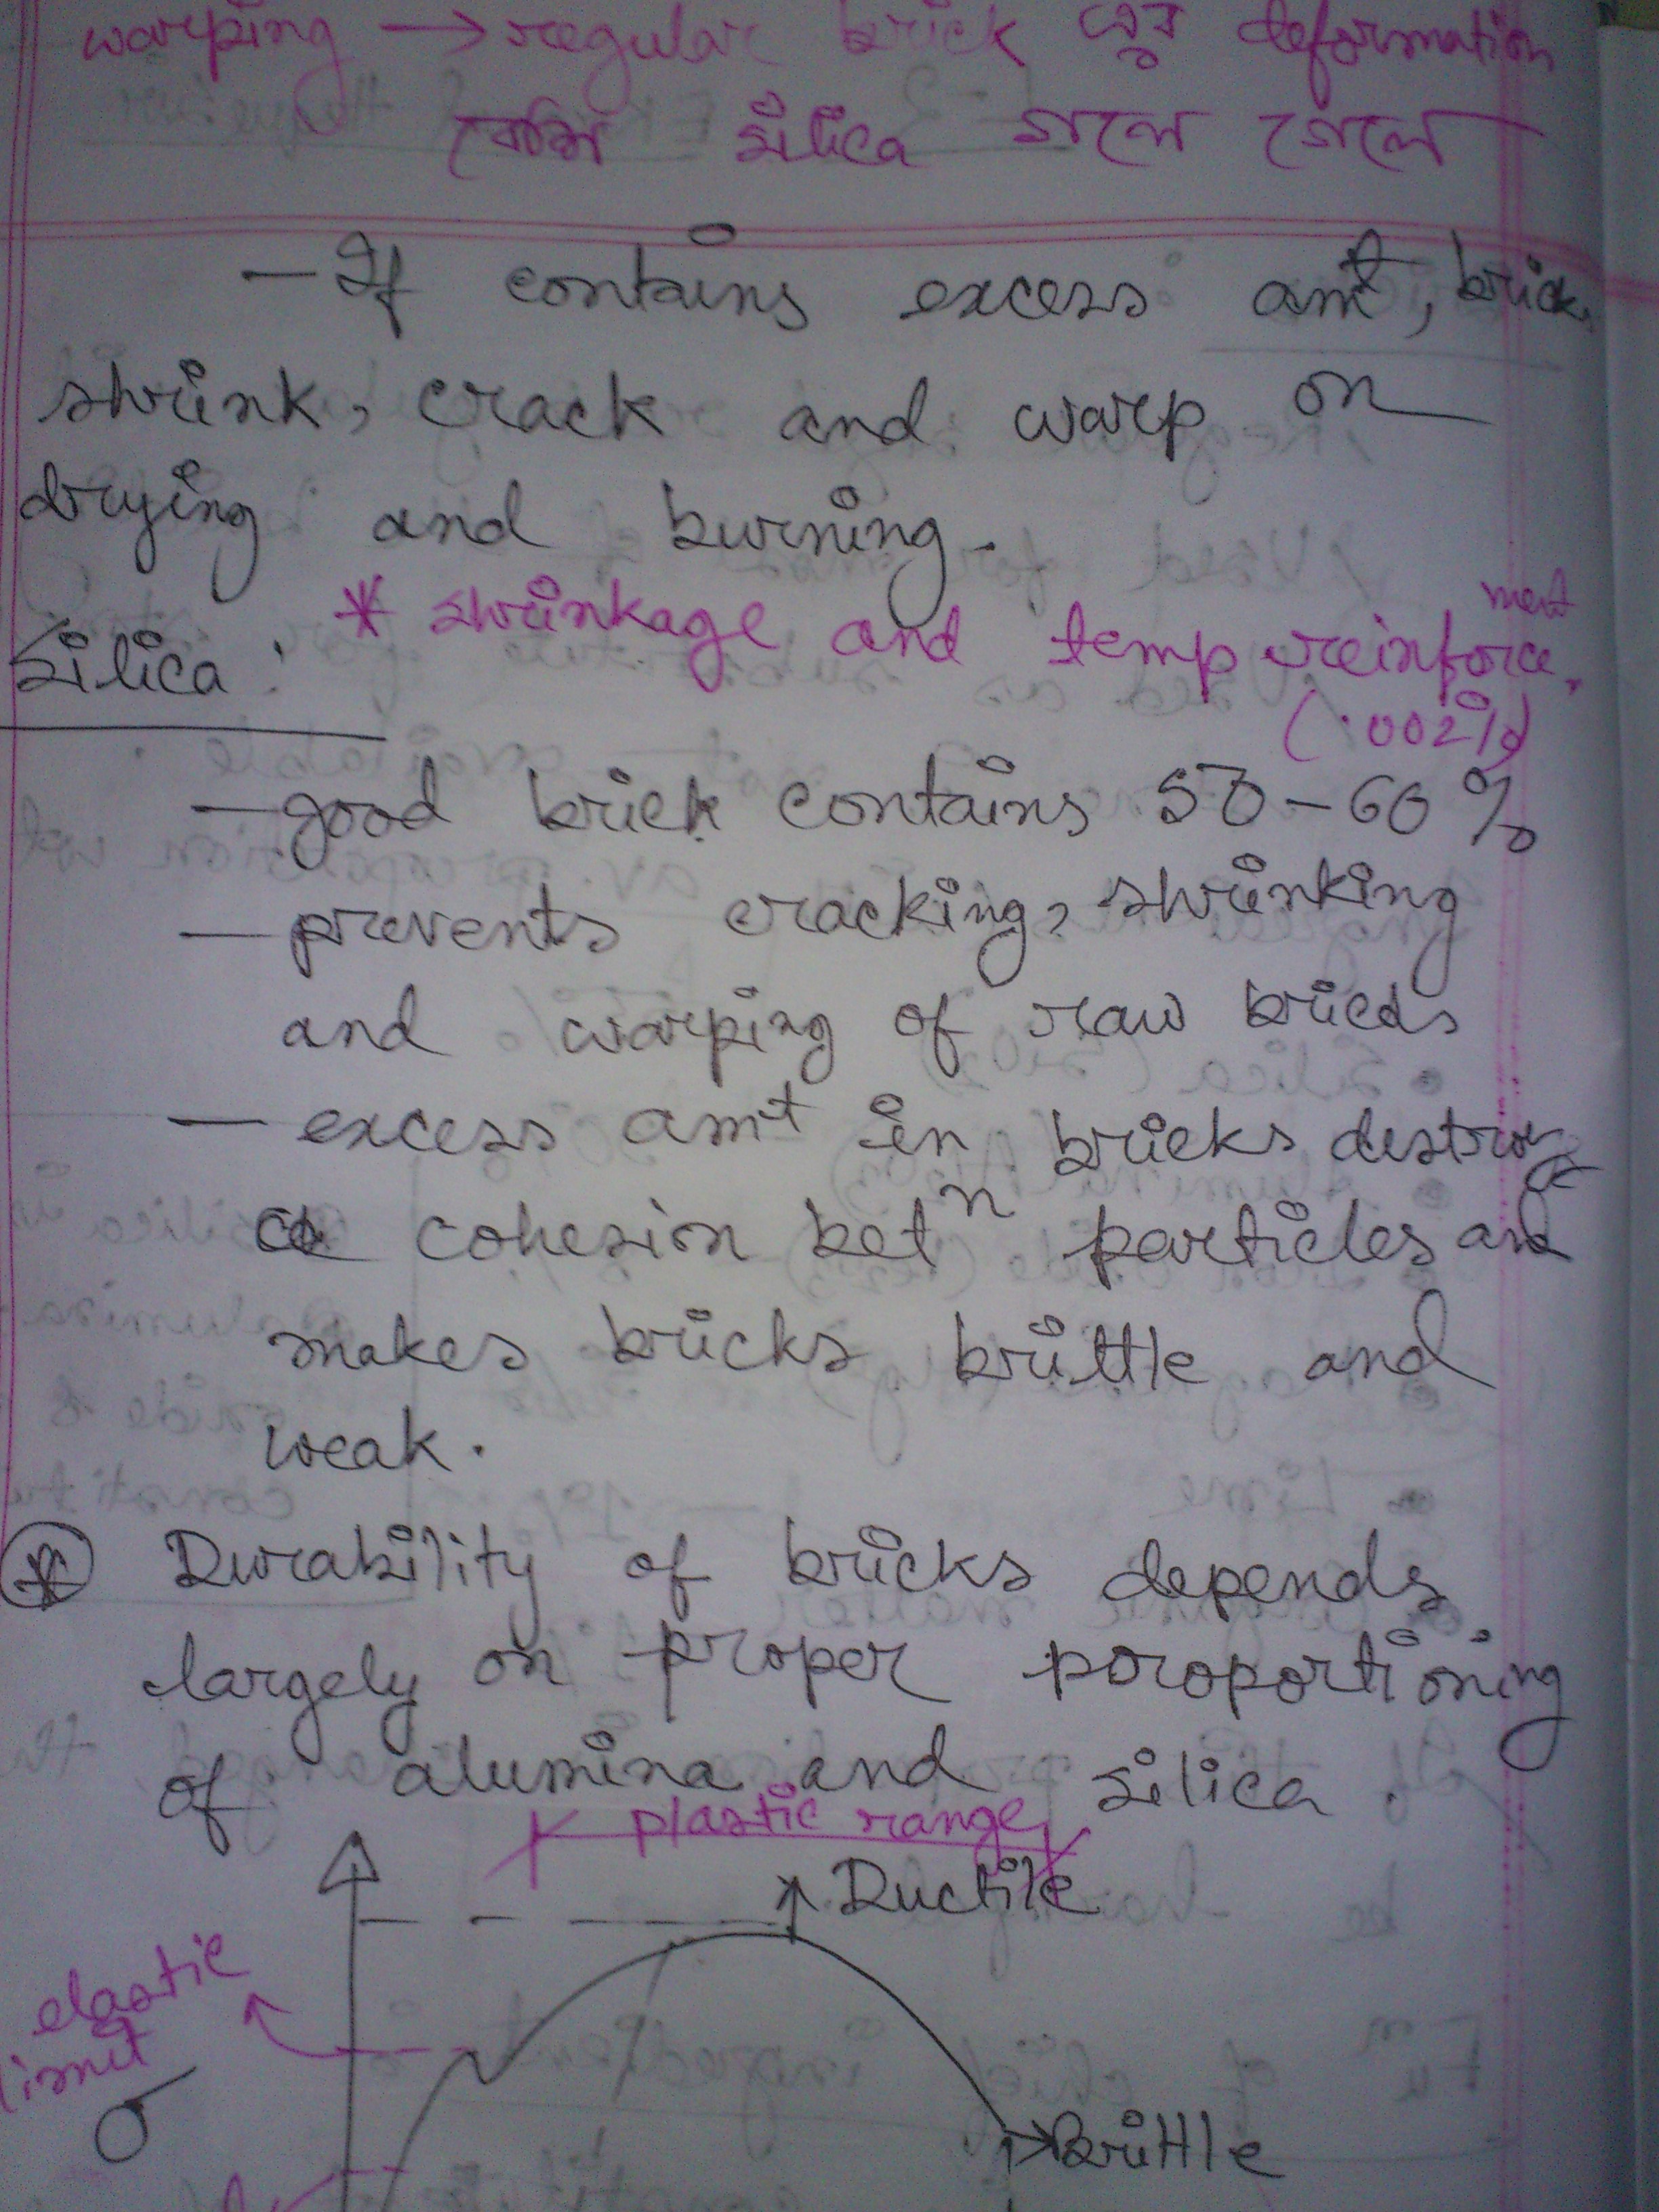 warping → regular brick এর deformation
বেশি silica গলে গেলে
— If contains excess amt, brick
shrink, crack and warp on
drying and burning.
* shrinkage and temp reinforcement
(.002%)
Silica :
— good brick contains 50 – 60 %
— prevents cracking, shrinking
and warping of raw bricks
— excess amt in bricks destroy
cohesion betn particles and
makes bricks brittle and
weak.
* Durability of bricks depends
largely on proper proportioning
of alumina and silica.
plastic range
Ductile
elastic
limit
σ
Brittle